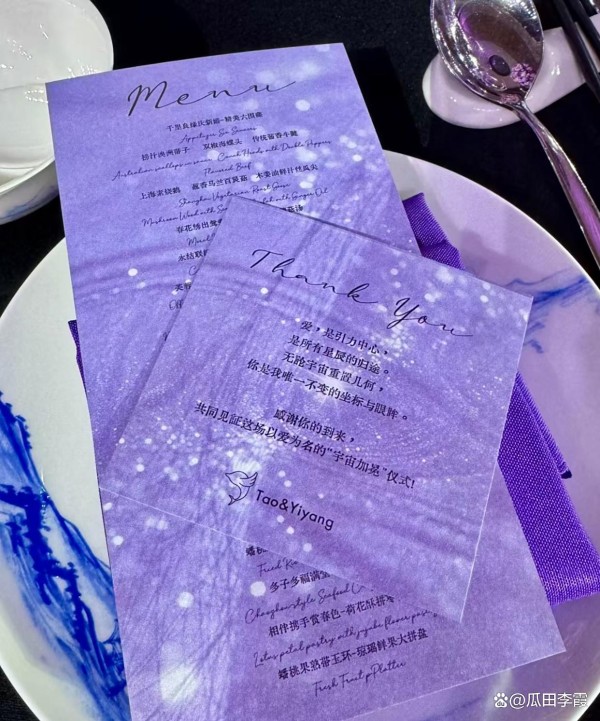 Menu
千里良缘庆新婚-精美大围碟
Appetizer Six Sensories
捞汁澳洲带子 双椒海螺头 传统酱香牛腱
Australian scallops in sauce Conch Heads with Double Peppers
Flavored Beef
上海素烧鹅 酱香马兰百莫菇 木姜油鲜汁丝瓜尖
Shanghai Vegetarian Roast Goose
Mushroom Ginger Oil
春花绣出鸳
永结联
美容
Thank You
爱，是引力中心，
是所有星辰的归途。
无论宇宙重置几何，
你是我唯一不变的坐标与眼眸。
感谢你的到来，
共同见证这场以爱为名的"宇宙加冕"仪式!
Tao&Yiyang
蟠桃
Fried
多子多福满
Chaozhou-style Seafood
相伴携手赏春色-荷花酥拼
Lotus petal pastry with jujube flower
蟠桃果熟带玉环-琼瑶鲜果大拼盘
Fresh Fruit pPlatter
瓜田李霞